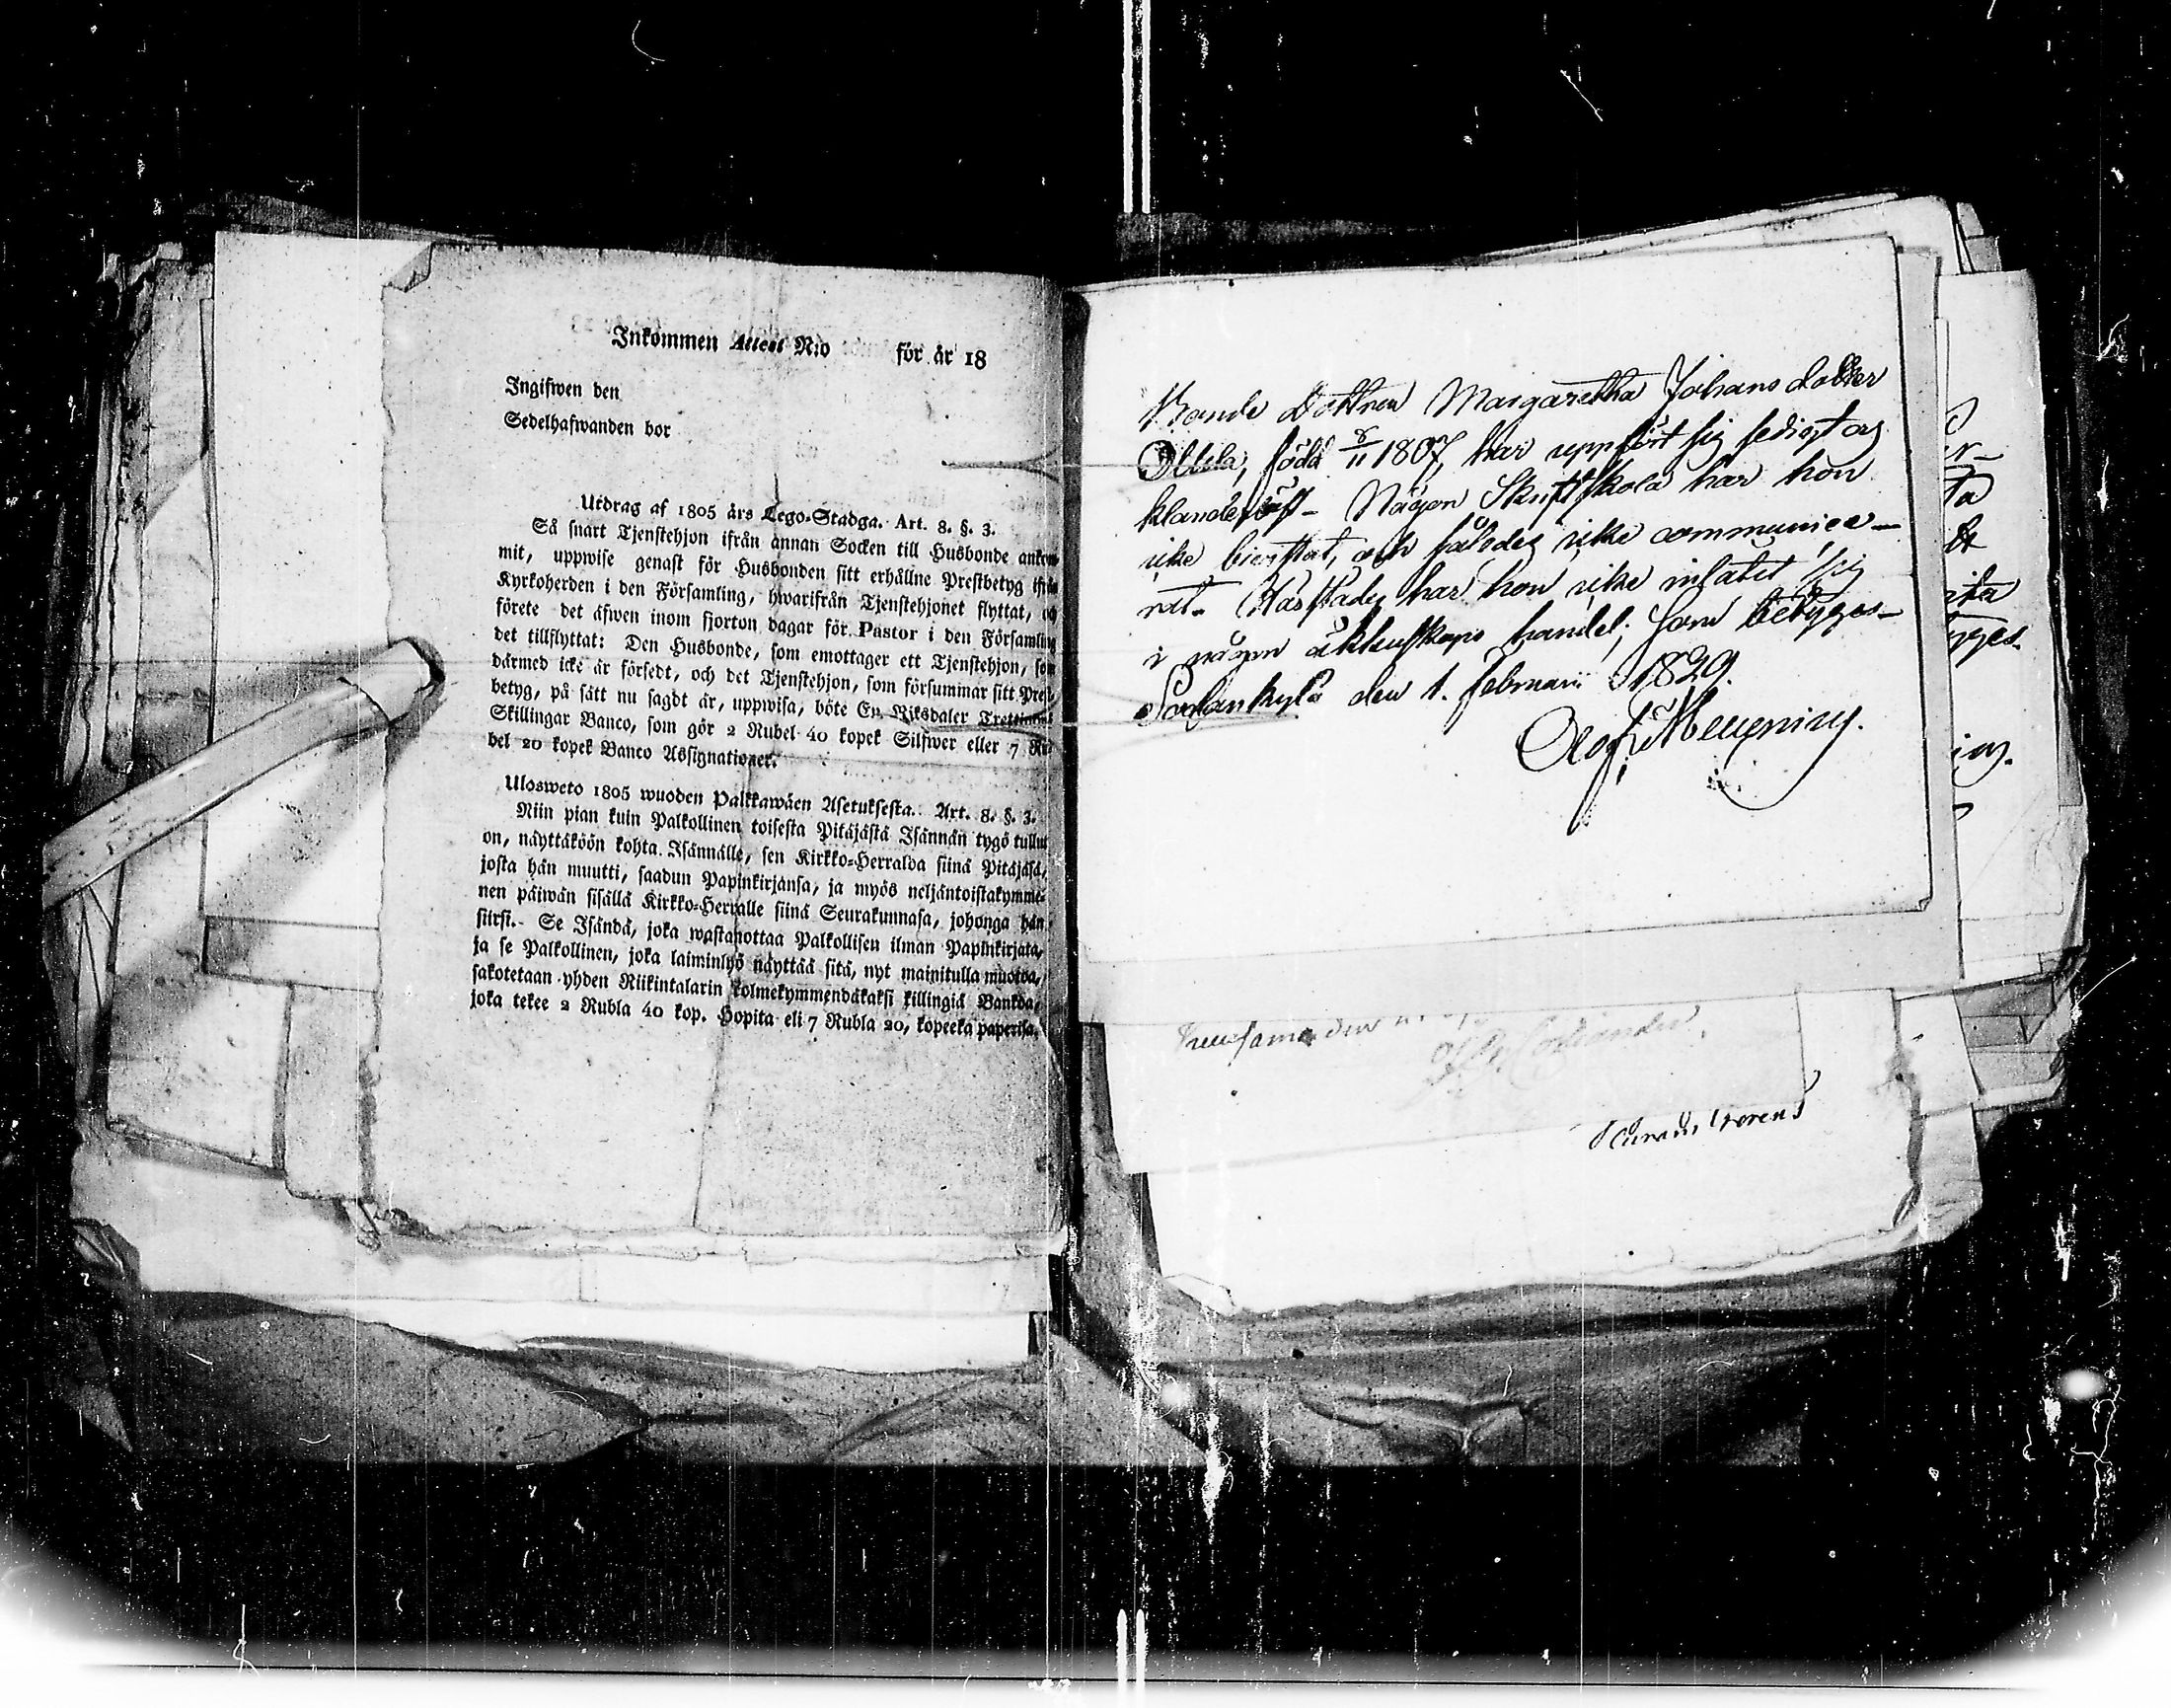 Inkommen Attest N:o för år 18
Ingifwen den
Sedelhafwanden bor
Utdrag af 1805 års Lego-Stadga. Art. 8. §. 3.
Så snart Tjenstehjon ifrån annan Socken till Husbonde ankom-
mit, uppwise genast för Husbonden sitt erhållne Prestbetyg ifrån
Kyrkoherden i den Församling, hwarifrån Tjenstehjonet flyttat, och
förete det äfwen inom fjorton dagar för Pastor i den Församling
det tillflyttat: Den Husbonde, som emottager ett Tjenstehjon, som
därmed icke är försedt, och det Tjenstehjon, som försummar sitt Prest-
betyg, på sätt nu sagdt är, uppwisa, böte En Riksdaler Trettiotvå
Skillingar Banco, som gör 2 Rubel 40 kopek Silfwer eller 7 Ru-
bel 20 kopek Banco Assignationer.
Ulosweto 1805 wuoden Palkkawäen Asetuksesta. Art. 8. §. 3.
Niin pian kuin Palkollinen toisesta Pitäjästä Isännän tygö tullut
on, näyttäköön kohta Isännälle, sen Kirkko-Herralda siinä Pitäjäsä,
josta hän muutti, saadun Papinkirjansa, ja myös neljäntoistakymme-
nen päiwän sisällä Kirkko-Herralle siinä Seurakunnasa, johonga hän
siirsi. Se Isändä, joka wastanottaa Palkollisen ilman Papinkirjata,
ja se Palkollinen, joka laiminlyö näyttää sitä, nyt mainitulla muotoa,
sakotetaan yhden Riikintalarin kolmekymmendäkaksi killingiä Bankoa,
joka tekee 2 Rubla 40 kop. Hopita eli 7 Rubla 20, kopeeka paperisa.
Bonde Dottren Margaretha Johansdotter
född 8/11 1807, har uppfört sig sedigt og
klanderlöst - Någon Skriftskola har hon
icke bevistat, och således icke communice-
rat. Härstädes har hon icke inlåtit sig
i någon äktenskaps handel; som betygas -
Sodankylä den 1. februari 1829.
den